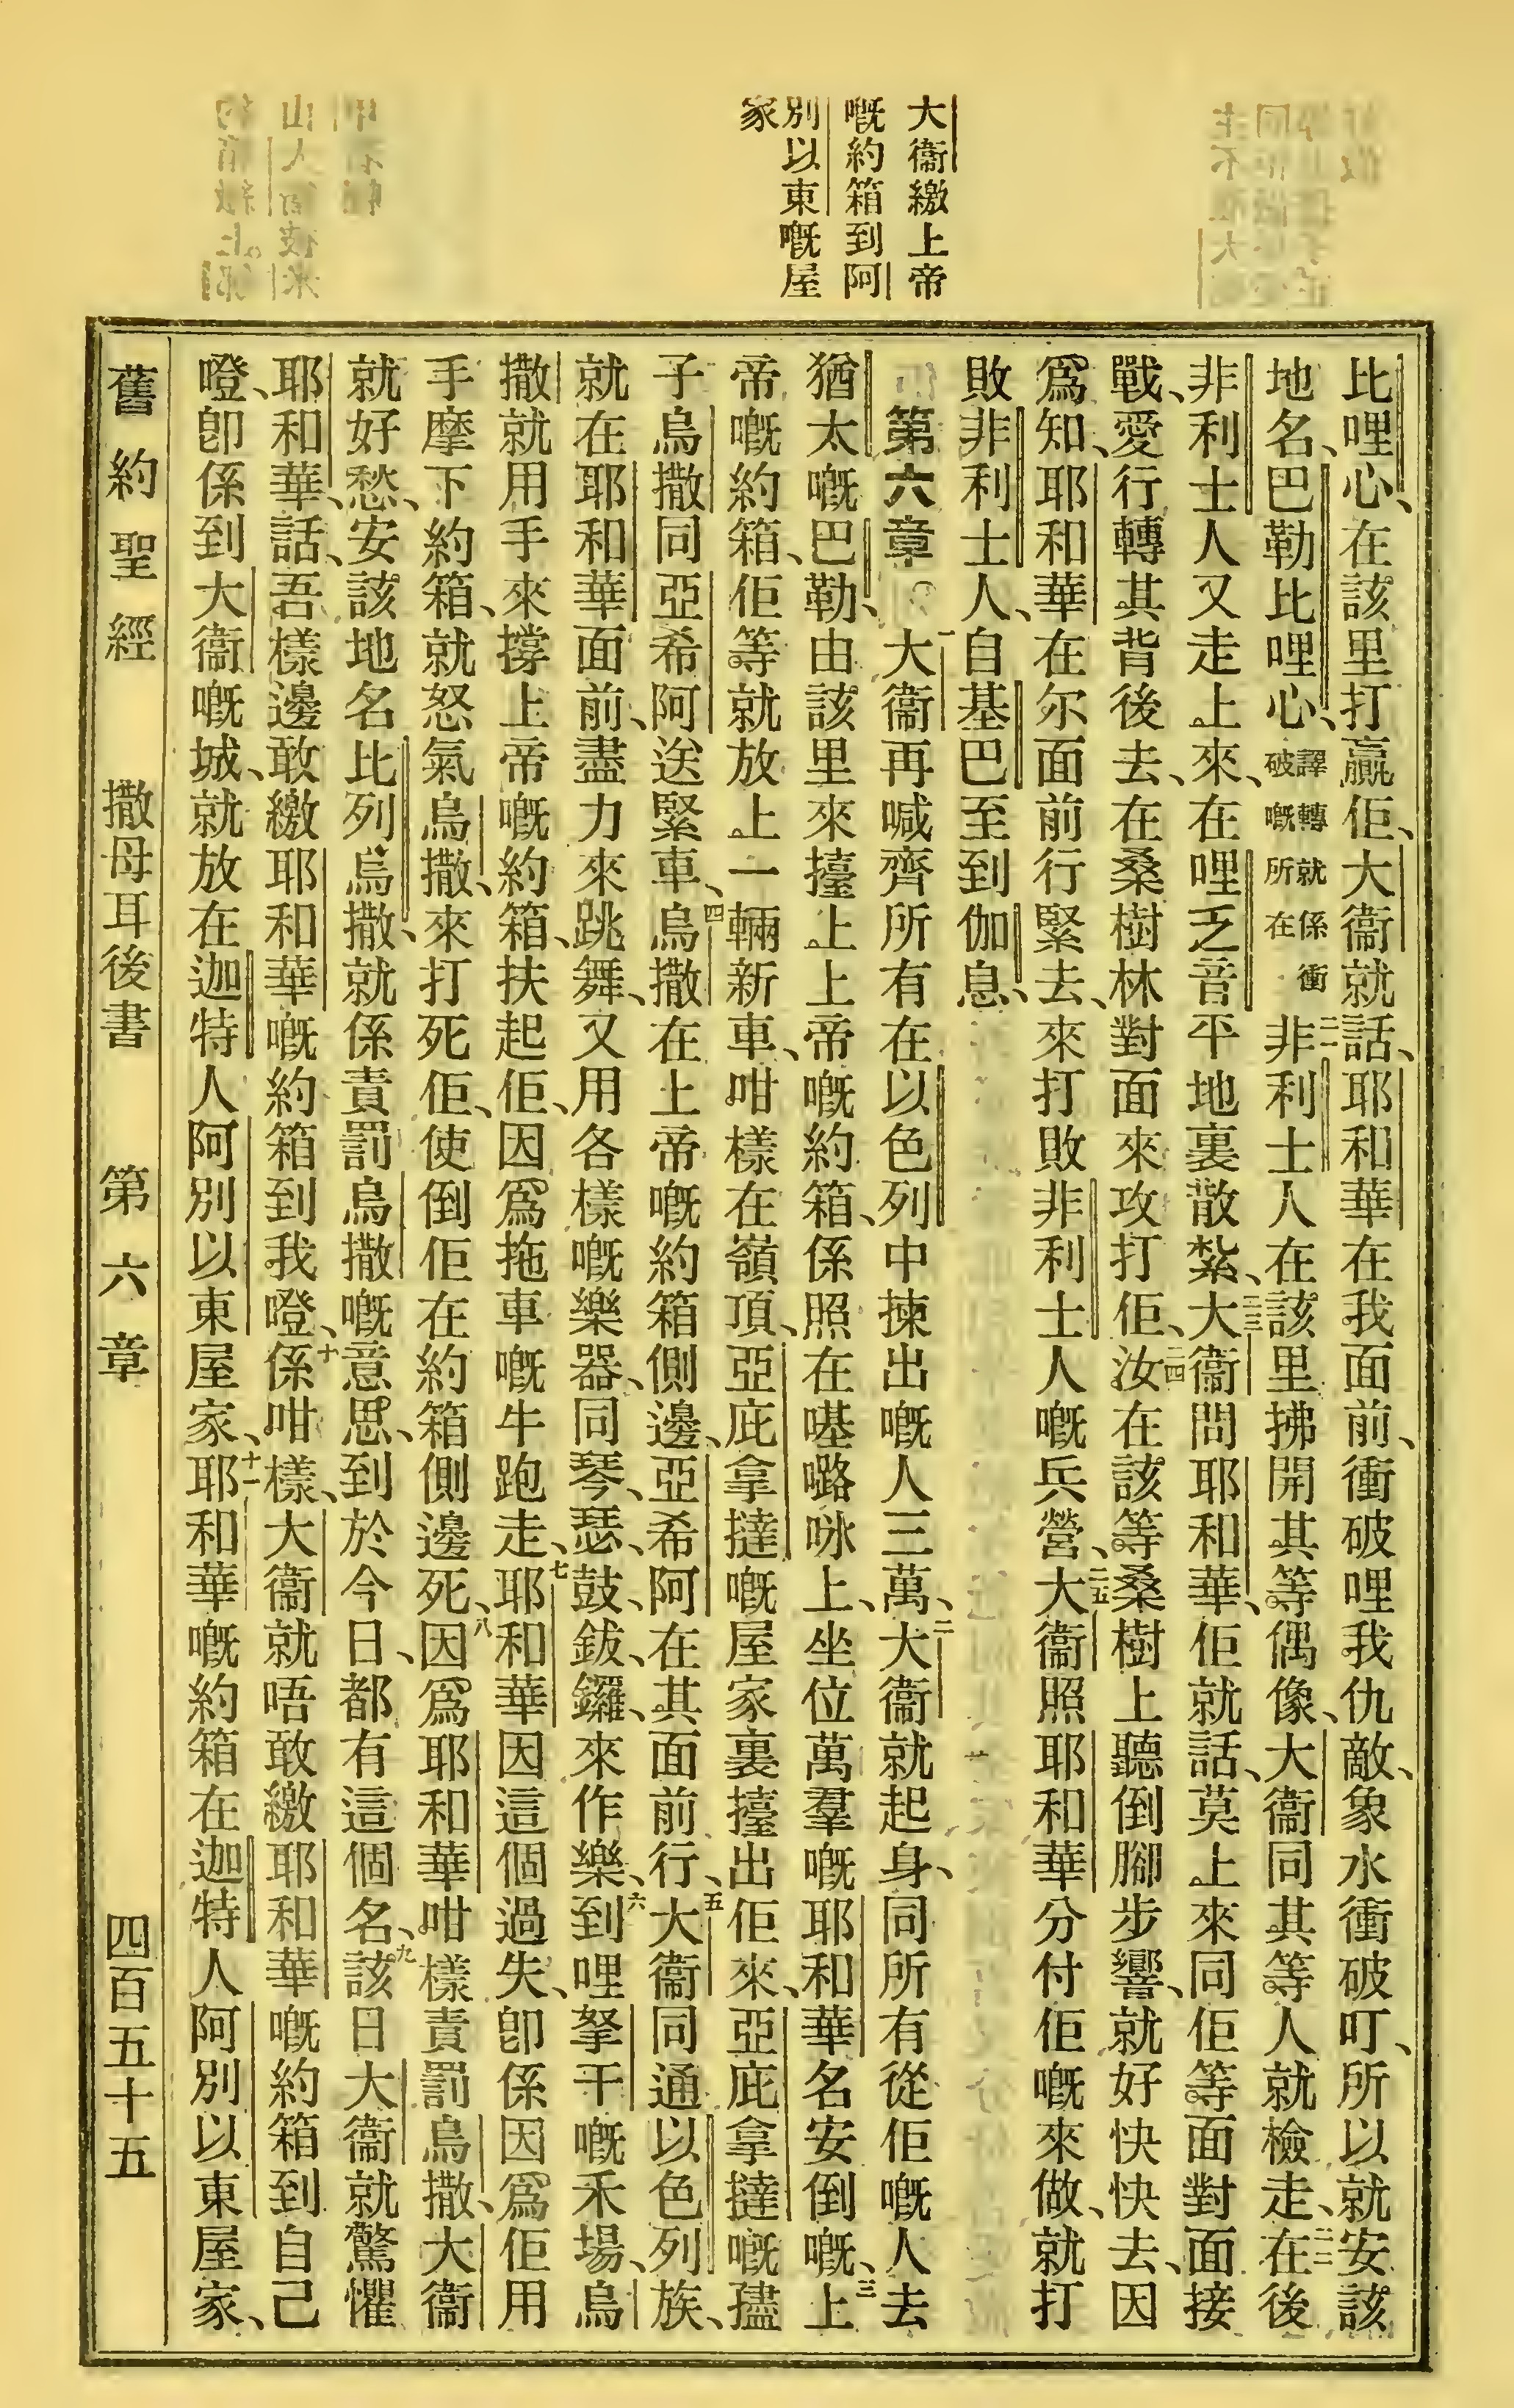 大衞繳上帝
嘅約箱到阿
別以東嘅屋
家
比哩心、在該里打贏佢、大衞就話、耶和華在我面前、衝破哩我仇敵、象水衝破叮、所以就安該
地名、巴勒比哩心、譯轉就係衝破嘅所在二一非利士人在該里拂開其等偶像、大衞同其等人就檢走、二二在後
非利士人又走上來、在哩乏音平地裏散紮、二三大衞問耶和華、佢就話、莫上來同佢等面對面接
戰、愛行轉其背後去、在桑樹林對面來攻打佢、二四汝在該等桑樹上聽倒腳步響、就好快快去、因
爲知、耶和華在尔面前行緊去、來打敗非利士人嘅兵營、二五大衞照耶和華分付佢嘅來做、就打
敗非利士人、自基巴至到伽息、
第六章 一大衞再喊齊所有在以色列中揀出嘅人三萬、二大衞就起身、同所有從佢嘅人去
猶太嘅巴勒、由該里來擡上上帝嘅約箱、係照在𠸝嚕咏上、坐位萬羣嘅耶和華名安倒嘅、三上
帝嘅約箱、佢等就放上一輛新車、咁樣在嶺頂、亞庇拿撻嘅屋家裏擡出佢來、亞庇拿撻嘅孻
子烏撒同亞希阿送緊車、四烏撒在上帝嘅約箱側邊、亞希阿在其面前行、五大衞同通以色列族、
就在耶和華面前、盡力來跳舞、又用各樣嘅樂器、同琴、瑟、鼓、鈸、鑼、來作樂、六到哩拏干嘅禾場、烏
撒就用手來撐上帝嘅約箱、扶起佢、因爲拖車嘅牛跑走、七耶和華因這個過失、卽係因爲佢用
手摩下約箱、就怒氣烏撒、來打死佢、使倒佢在約箱側邊死、八因爲耶和華咁樣責罰烏撒、大衞
就好愁、安該地名比列烏撒、就係責罰烏撒嘅意思、到於今日、都有這個名、九該日大衞就驚懼
耶和華、話、吾樣邊敢繳耶和華嘅約箱到我嶝、十係咁樣、大衞就唔敢繳耶和華嘅約箱到自己
嶝、卽係到大衞嘅城、就放在迦特人阿別以東屋家、十一耶和華嘅約箱在迦特人阿別以東屋家、
舊約聖經 撒母耳後書 第六章 四百五十五